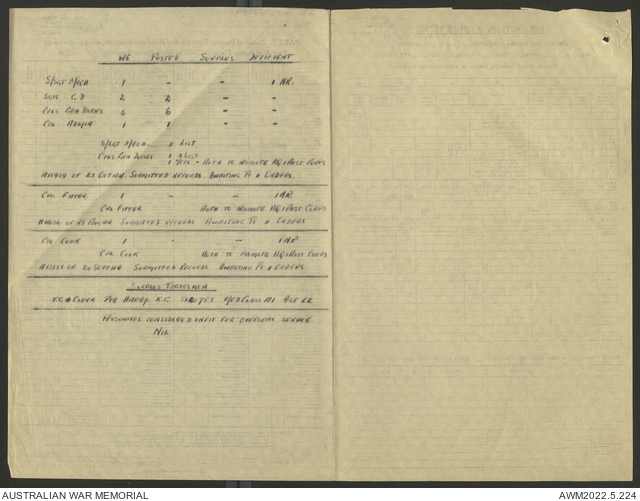 WE POSTED SURPLUS DEFICIENT
S/SGT M/ECH 1 - - 1 NR.
SGT. G D 2 2 - -
CPLS. GEN DUTIES 6 6 - -
CPL. 1 1 - -
S/SGT M/ECH. X LIST
CPLS. GEN DUTIES 1 X LIST
1 - AUTH TO PROMOTE HQ 1 AUST CORPS
OF 23 OCT 44. SUBMITTED RECORDS. AWAITING PT II ORDERS.
CPL FITTER 1 - - 1 NR.
CPL FITTER AUTH TO PROMOTE HQ 1 AUST CORPS
OF SUBMITTED RECORDS AWAITING PT II ORDERS
CPL COOK 1 - - 1 NR
CPL COOK AUTH TO PROMOTE HQ 1 AUST CORPS
OF 20 SEPT 44 SUBMITTED RECORDS AWAITING PT II ORDERS
SURPLUS TRADESMEN
PTE HARDY. K.C. MED CLASS A1 AGE 22
PERSONNEL CONSIDERED UNFIT FOR OVERSEAS SERVICE
NIL
AUSTRALIAN WAR MEMORIAL
AWM2022.5.224